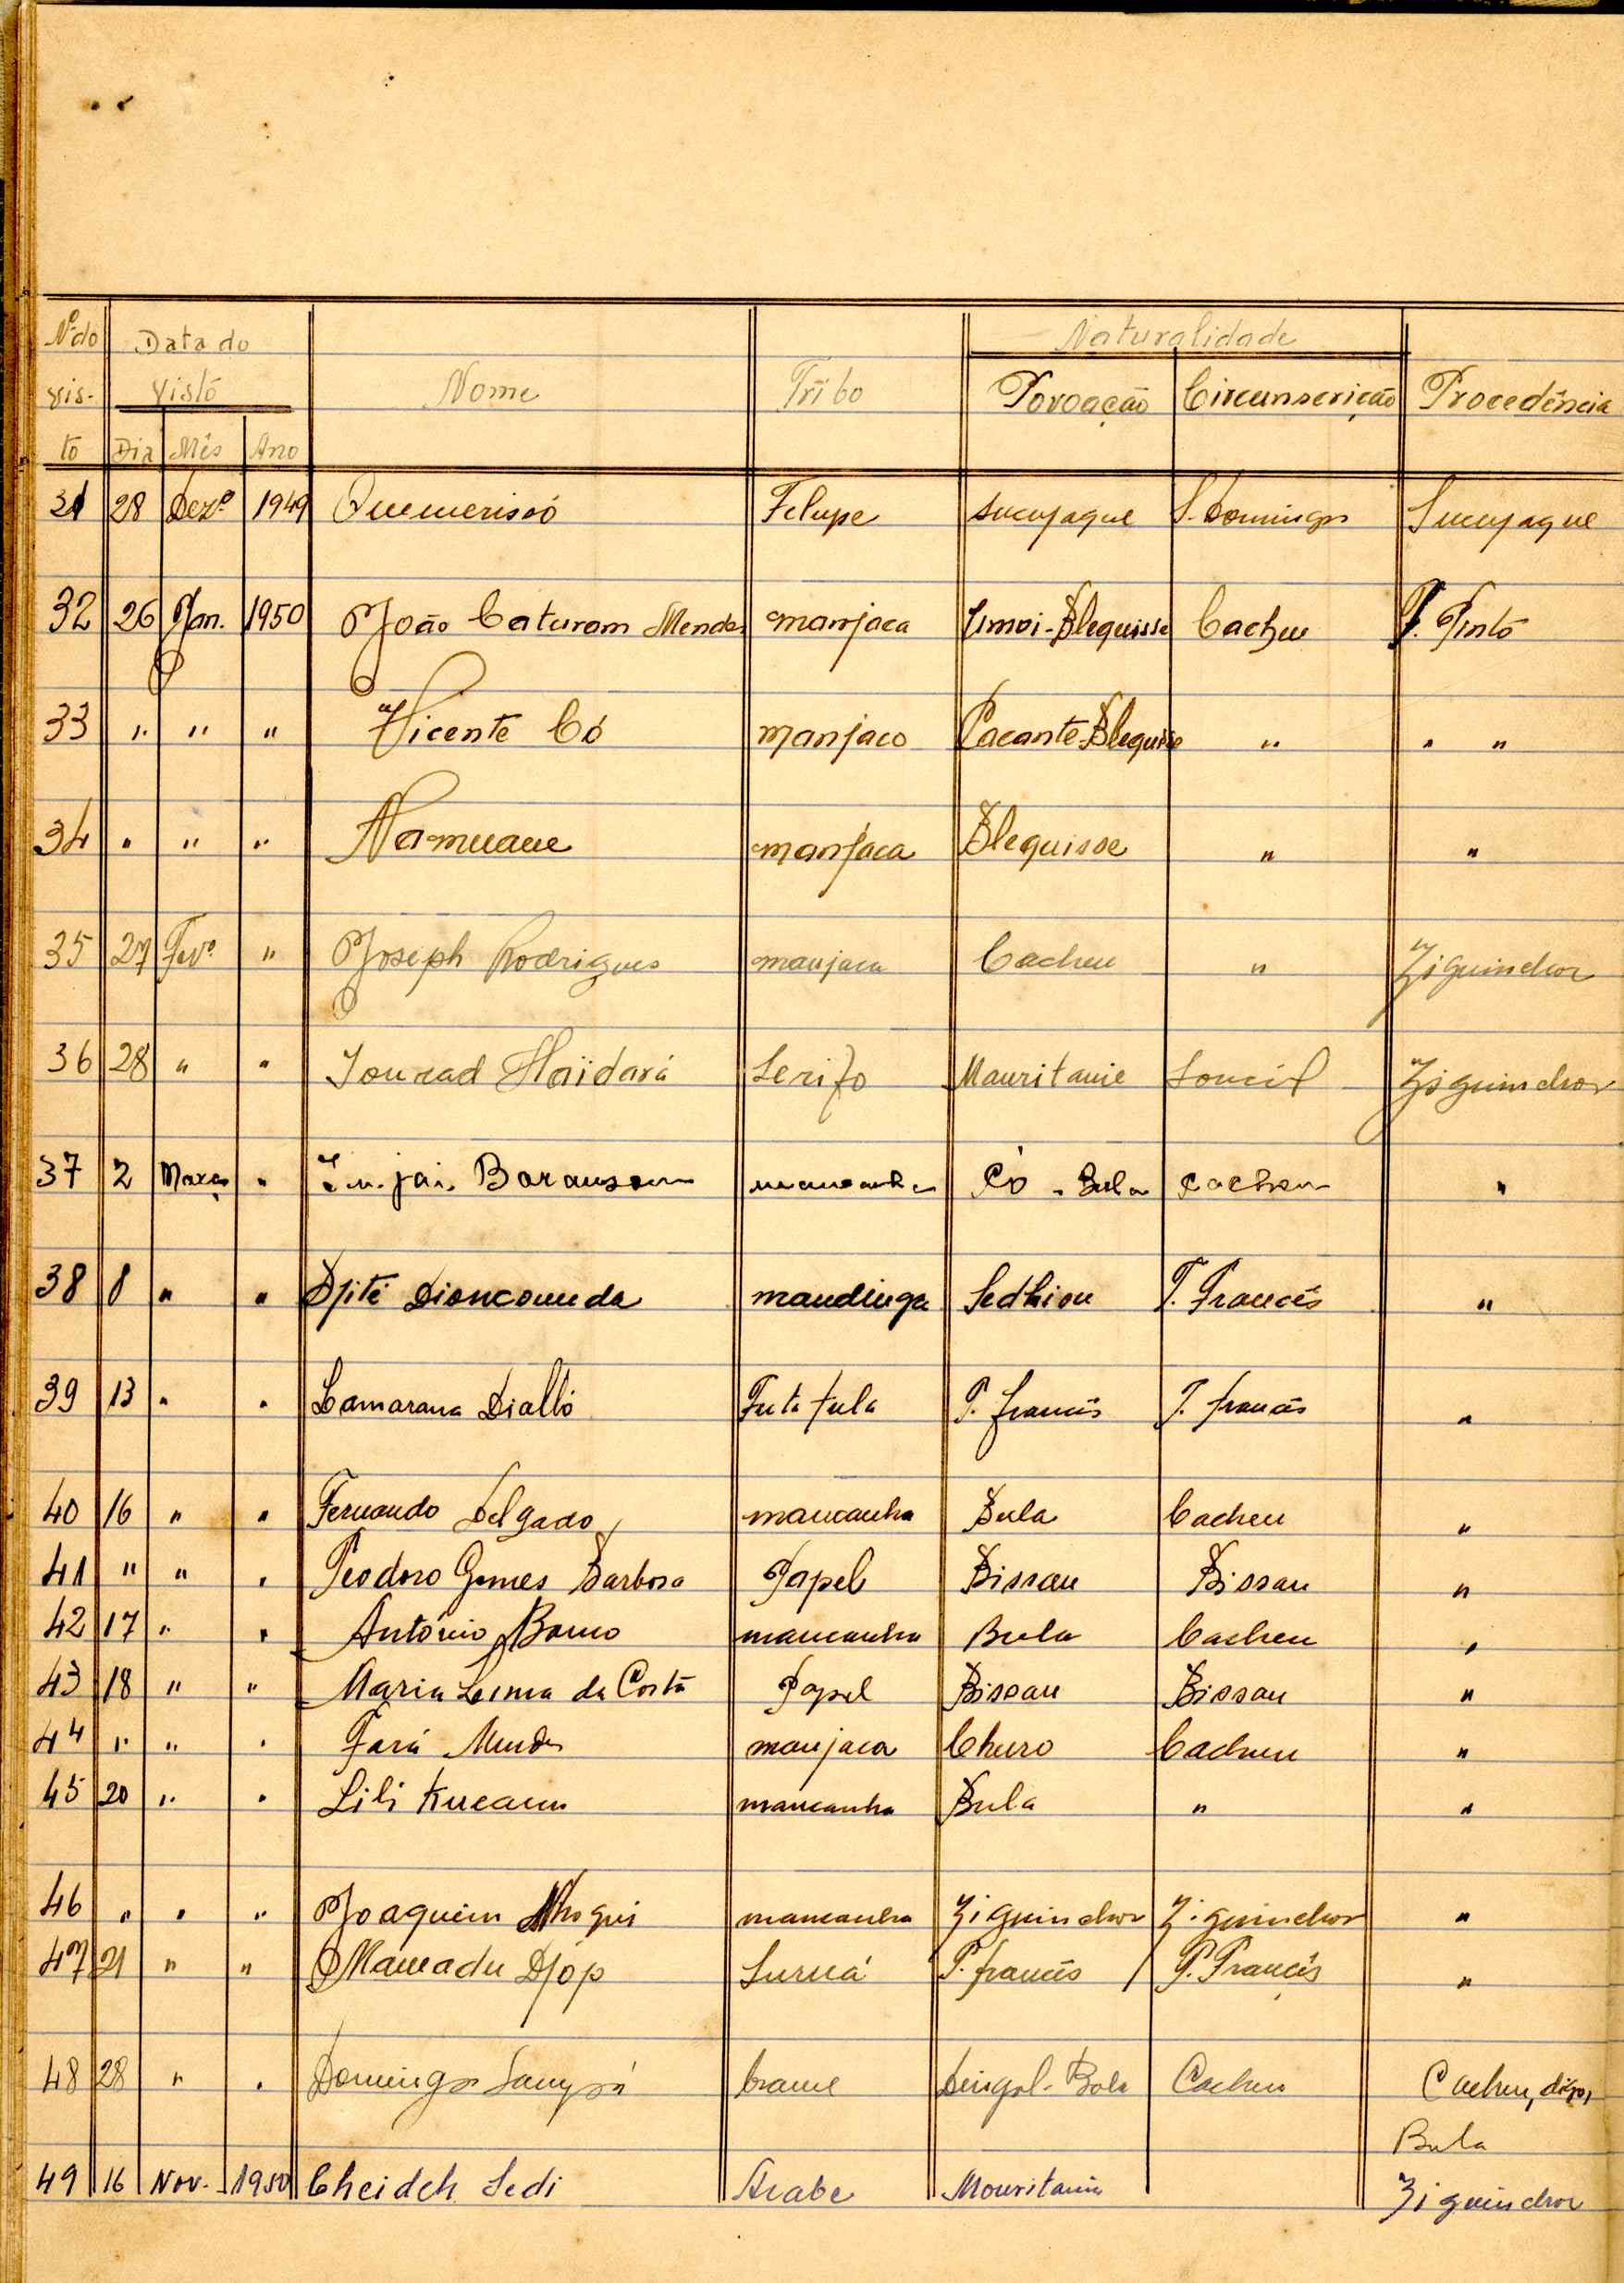 Nº do Data do Naturalidade
vis- visto Nome Tribo Povoação Circunscrição Procedência
to Dia Mês Ano
31 28 Dezº 1949 Felupe Sucujaque S. Domingos Sucujaque
32 26 Jan. 1950 João Caturam Mendes manjaca Blequisse Cacheu T. Pinto
33 " " " Vicente Có manjaco Pacante-Blequisse " " "
34 " " " Namuaue manjaca Blequisse " "
35 27 Fevº " Joseph Rodrigues manjaca Cacheu " Ziguinchor
36 28 " " Haïdará Serifo Mauritanie Ziguinchor
37 2 Março " mancanha Có - Bula Cacheu "
38 8 " " Djité Dioncounda mandinga Sedhiou T. Francês "
39 13 " " Camarana Dialló Futa fula T. francês T. francês "
40 16 " " Fernando Delgado mancanha Bula Cacheu "
41 " " " Teodoro Gomes Barbosa Papel Bissau Bissau "
42 17 " " António mancanha Bula Cacheu "
43 18 " " Maria Lima da Costa Papel Bissau Bissau "
44 " " " Fará Mendes manjaca Churo Cacheu "
45 20 " " Lili mancanha Bula " "
46 " " " Joaquim mancanha Ziguinchor Ziguinchor "
47 21 " " Mamadu Djóp Suruá T. francês T. Francês "
48 28 " " Domingos Sampá brame Dingal-Bula Cacheu Cacheu, digo,
Bula
49 16 Nov. 1950 Cheideh Sedi Arabe Mouritania Ziguinchor